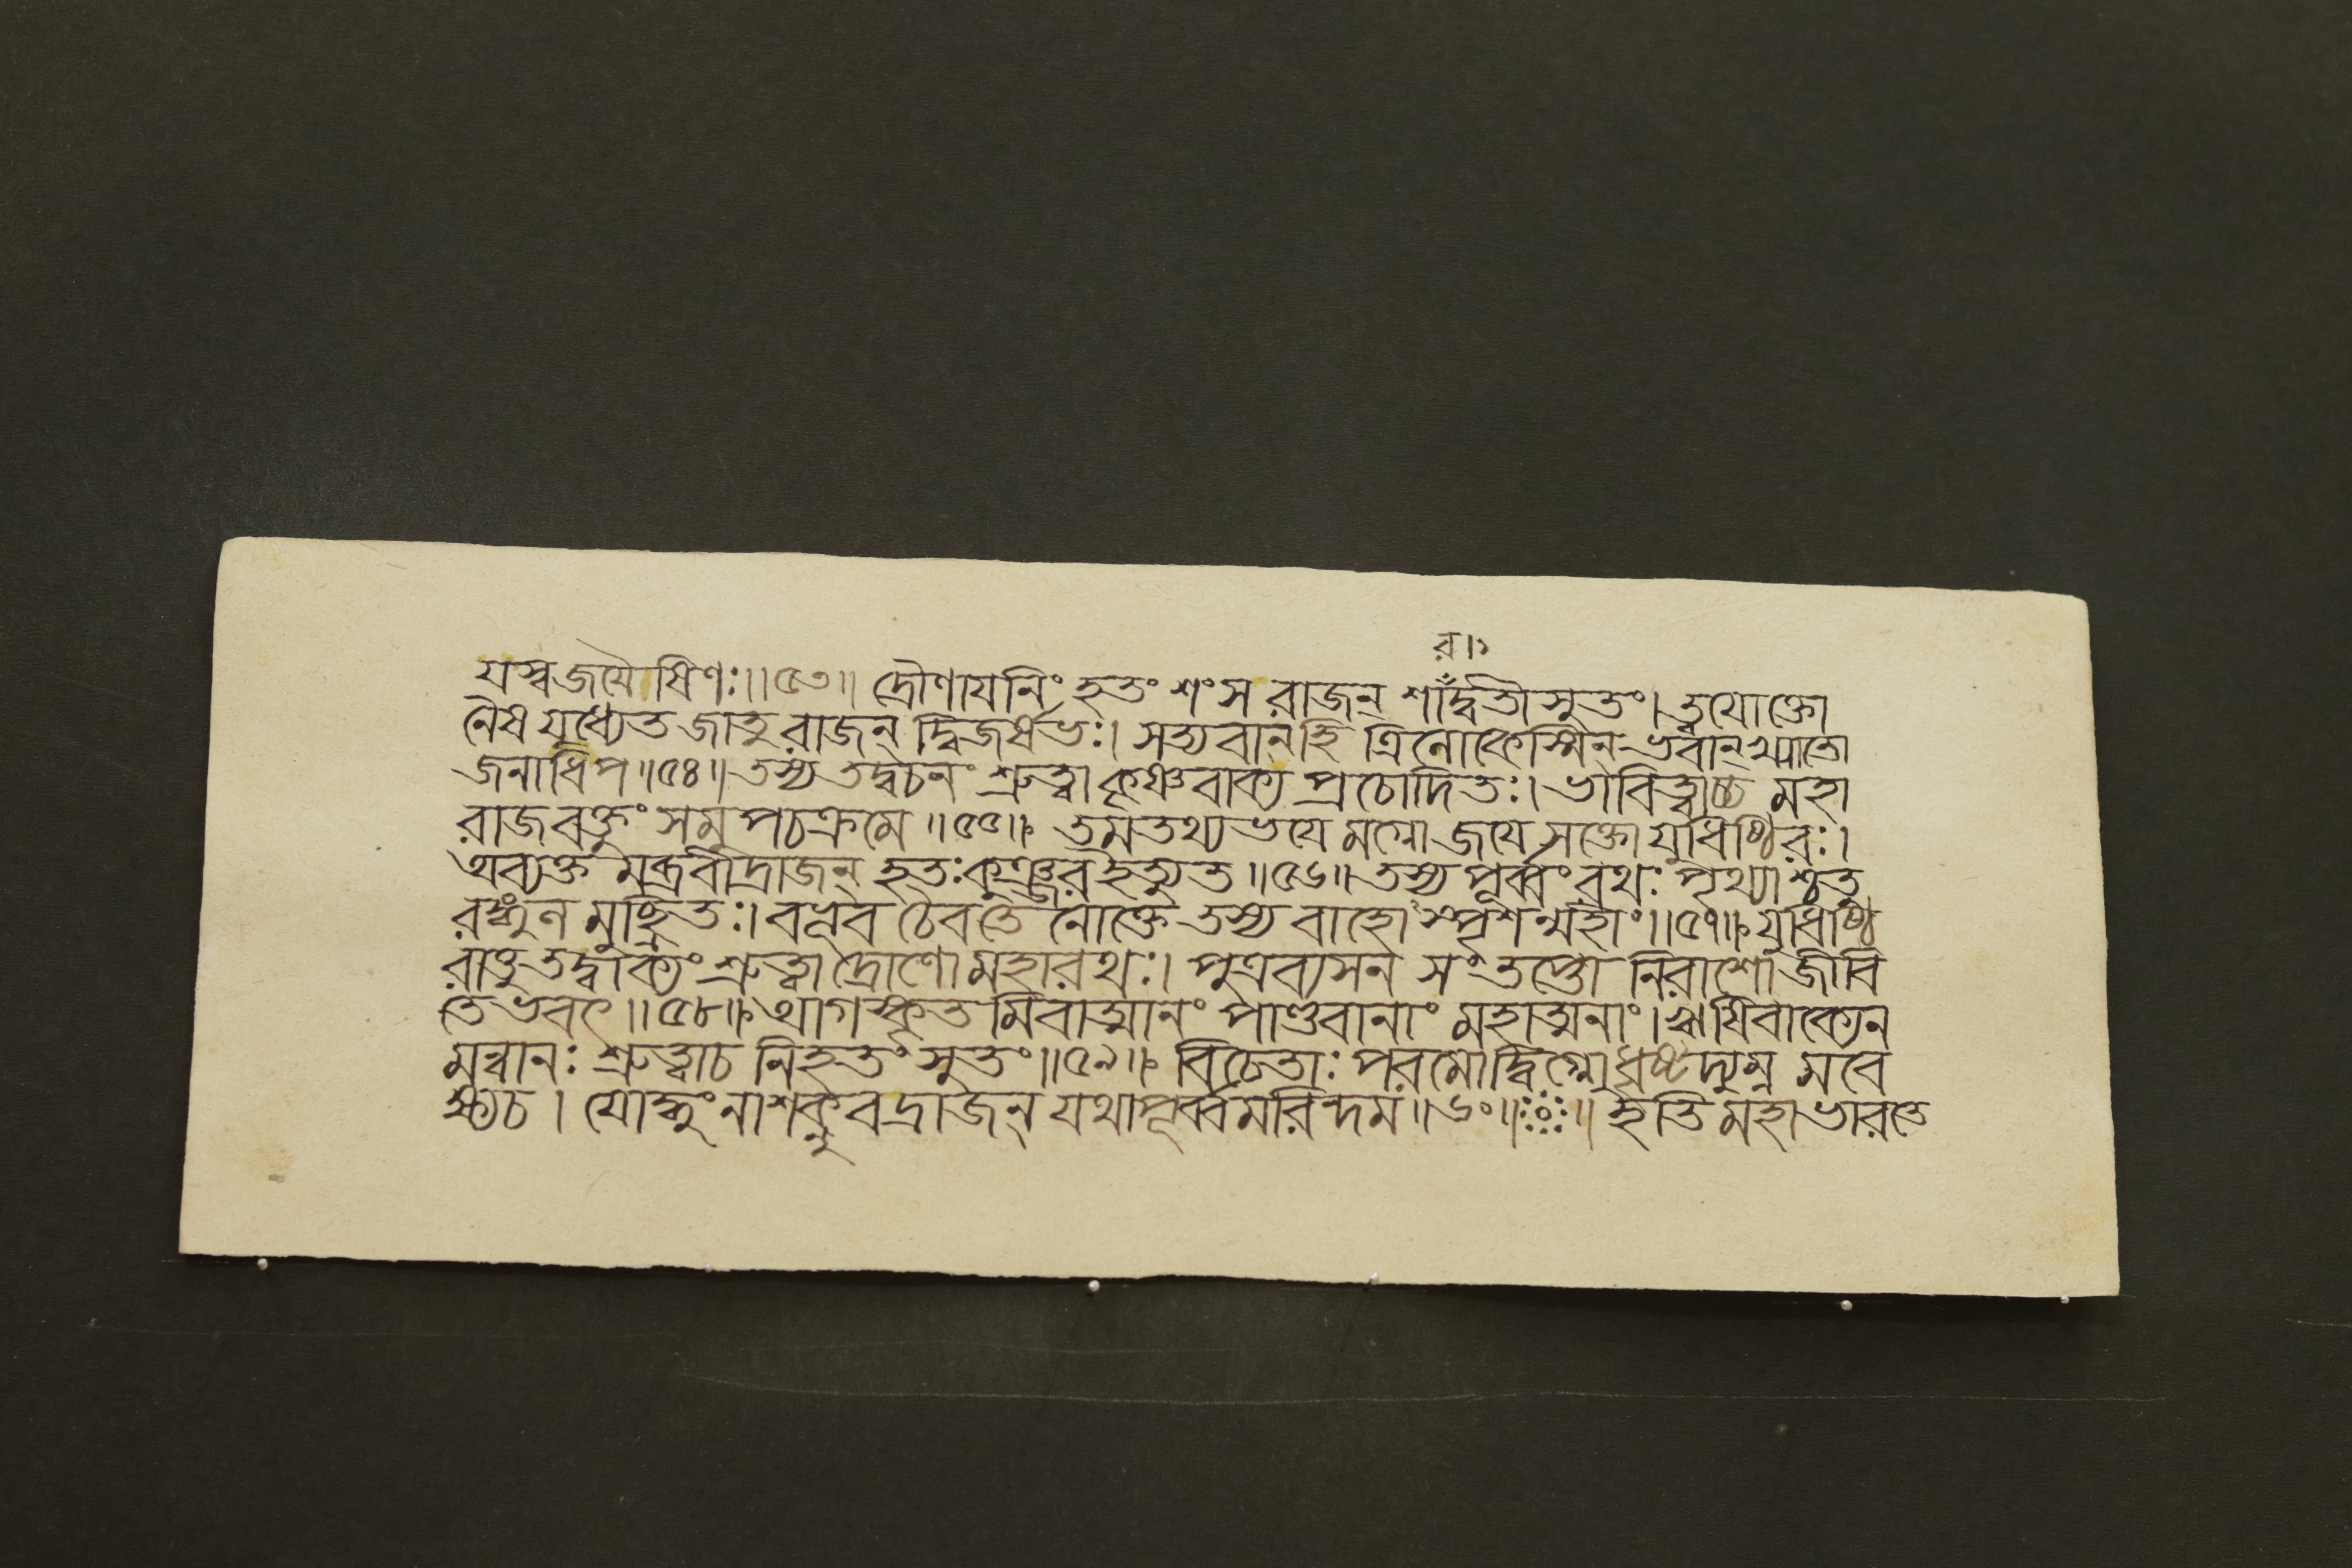 র।১
যস্বজযৈষিণঃ॥৫৩॥ দ্রৌণাযনিং হতং শংস রাজন্ শাঁদ্বতীসুতং। তযোক্তো
নৈষ যুধ্যেত জাতু রাজন্ দ্বিজর্ষভঃ। সত্যবান্হি ত্রিলোকেস্মিন্ ভবান্ খ্যাতো
জনাধিপ॥৫৪॥ তস্য তদ্বচনং শ্রুত্বা কৃষ্ণবাক্য প্রচোদিতঃ। ভাবিত্বাচ্চ মহা
রাজ বক্তুং সমুপচক্রমে॥৫৫॥ তমতথ্য ভযে মগ্নো জযে সক্তো যুধিষ্ঠিরঃ।
অব্যক্ত মব্রবীদ্রাজন্ হতঃ কুঞ্জর ইত্যুত॥৫৬॥ তস্য পূর্ব্বং রথঃ পৃথ্ব্যাশ্চতু
রঙ্গুল মুচ্ছ্রিতঃ। বভূব চৈবন্তে নোক্তে তস্য বাহো স্পৃশন্মহীং॥৫৭॥ যুধিষ্ঠি
রাত্তু তদ্বাক্যং শ্রুত্বা দ্রোণো মহারথঃ। পুত্রব্যসন সংতপ্তো নিরাশো জীবি
তে ভবৎ॥৫৮॥ আগস্কৃত মিবাত্মানং পাণ্ডবানাং মহাত্মনাং। ঋষিবাক্যেন
মন্বানঃ শ্রুত্বাচ নিহতং সুতং॥৫৯॥ বিচেতাঃ পরমোদ্বিগ্নো ধৃষ্টদ্যুম্ন মবে
ক্ষ্যচ। যোদ্ধুং নাশক্নুবদ্রাজন্ যথাপূর্ব্বমরিন্দম॥৬০॥ ॥ ইতি মহাভারতে